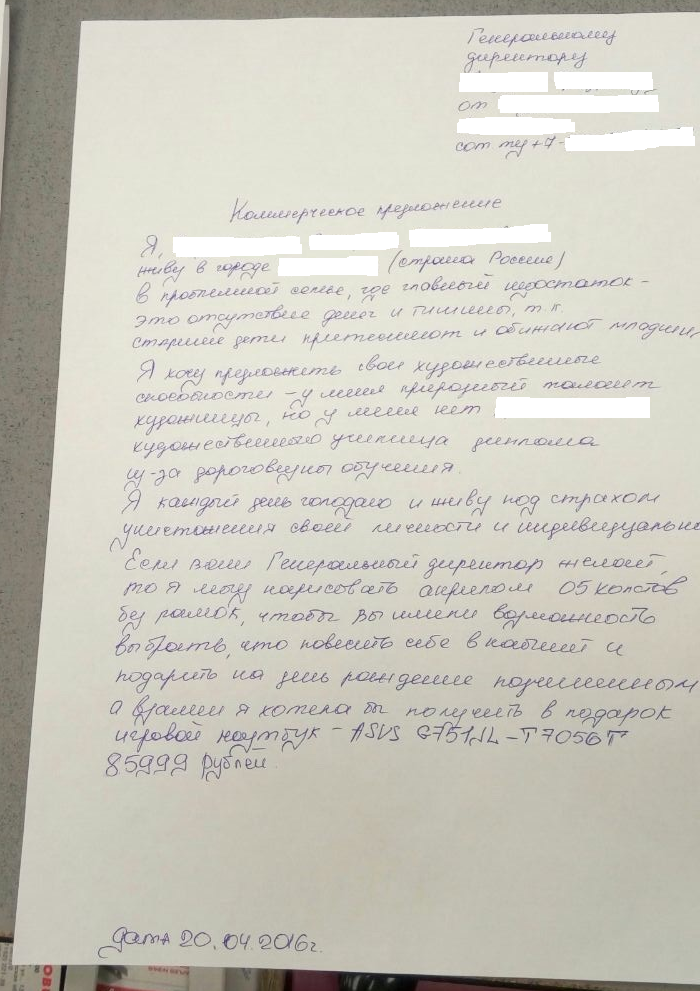 Генеральному
директору
от
сот тел +7-
Коммерческое предложение
Я,
живу в городе (страна Россия)
в проблемной семье, где главный недостаток -
это отсутствие денег и тишины, т.к.
старшие дети притесняют и обижают младших,
Я хочу предложить свои художественные
способности - у меня природный талант
художницы, но у меня нет
художественного училища диплома
из-за дороговизны обучения.
Я каждый день голодаю и живу под страхом
уничтожения своей личности и индивидуально
Если ваш Генеральный директор желает,
то я могу нарисовать акрилом 05 холстов
без рамок, чтобы вы имели возможность
выбрать, что повесить себе в кабинет и
подарить на день рождение подчиненным
а взамен я хотела бы получить в подарок
игровой ноутбук - ASUS G751JL-T7056T
85999 рублей.
дата 20.04.2016г.